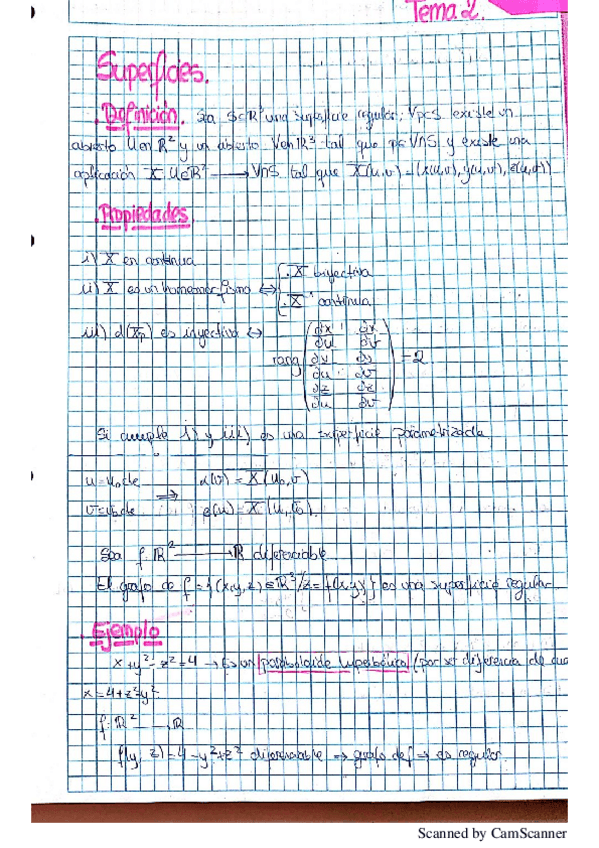 Tema 2.
Superficies.
. Definición. Sea S⊂R³ una superficie regular, ∀p∈S existe un
abierto U en R² y un abierto V en R³ tal que p∈V∩S y existe una
aplicación X: U⊂R² → V∩S tal que X(u,v)=(x(u,v), y(u,v), z(u,v))
. Propiedades
i) X es continua
ii) X es un homeomorfismo ⟺ { . X biyectiva
. X⁻¹ continua
iii) d(Xp) es inyectiva ⟺ rang ( dx/du dx/dv
dy/du dy/dv
dz/du dz/dv ) = 2
Si cumple i) y iii) es una superficie parametrizada
u=u₀ cte ⟹ α(v) = X(u₀,v)
v=v₀ cte β(u) = X(u,v₀).
Sea f: R² → R diferenciable
El grafo de f = {(x,y,z)∈R³/z=f(x,y)} es una superficie regular
. Ejemplo
x+y²-z²=4 → Es un paraboloide hiperbólico (por ser diferencia de cua
x=4+z²-y²
f: R² → R
f(y,z)=4-y²+z² diferenciable → grafo de f → es regular.
Scanned by CamScanner